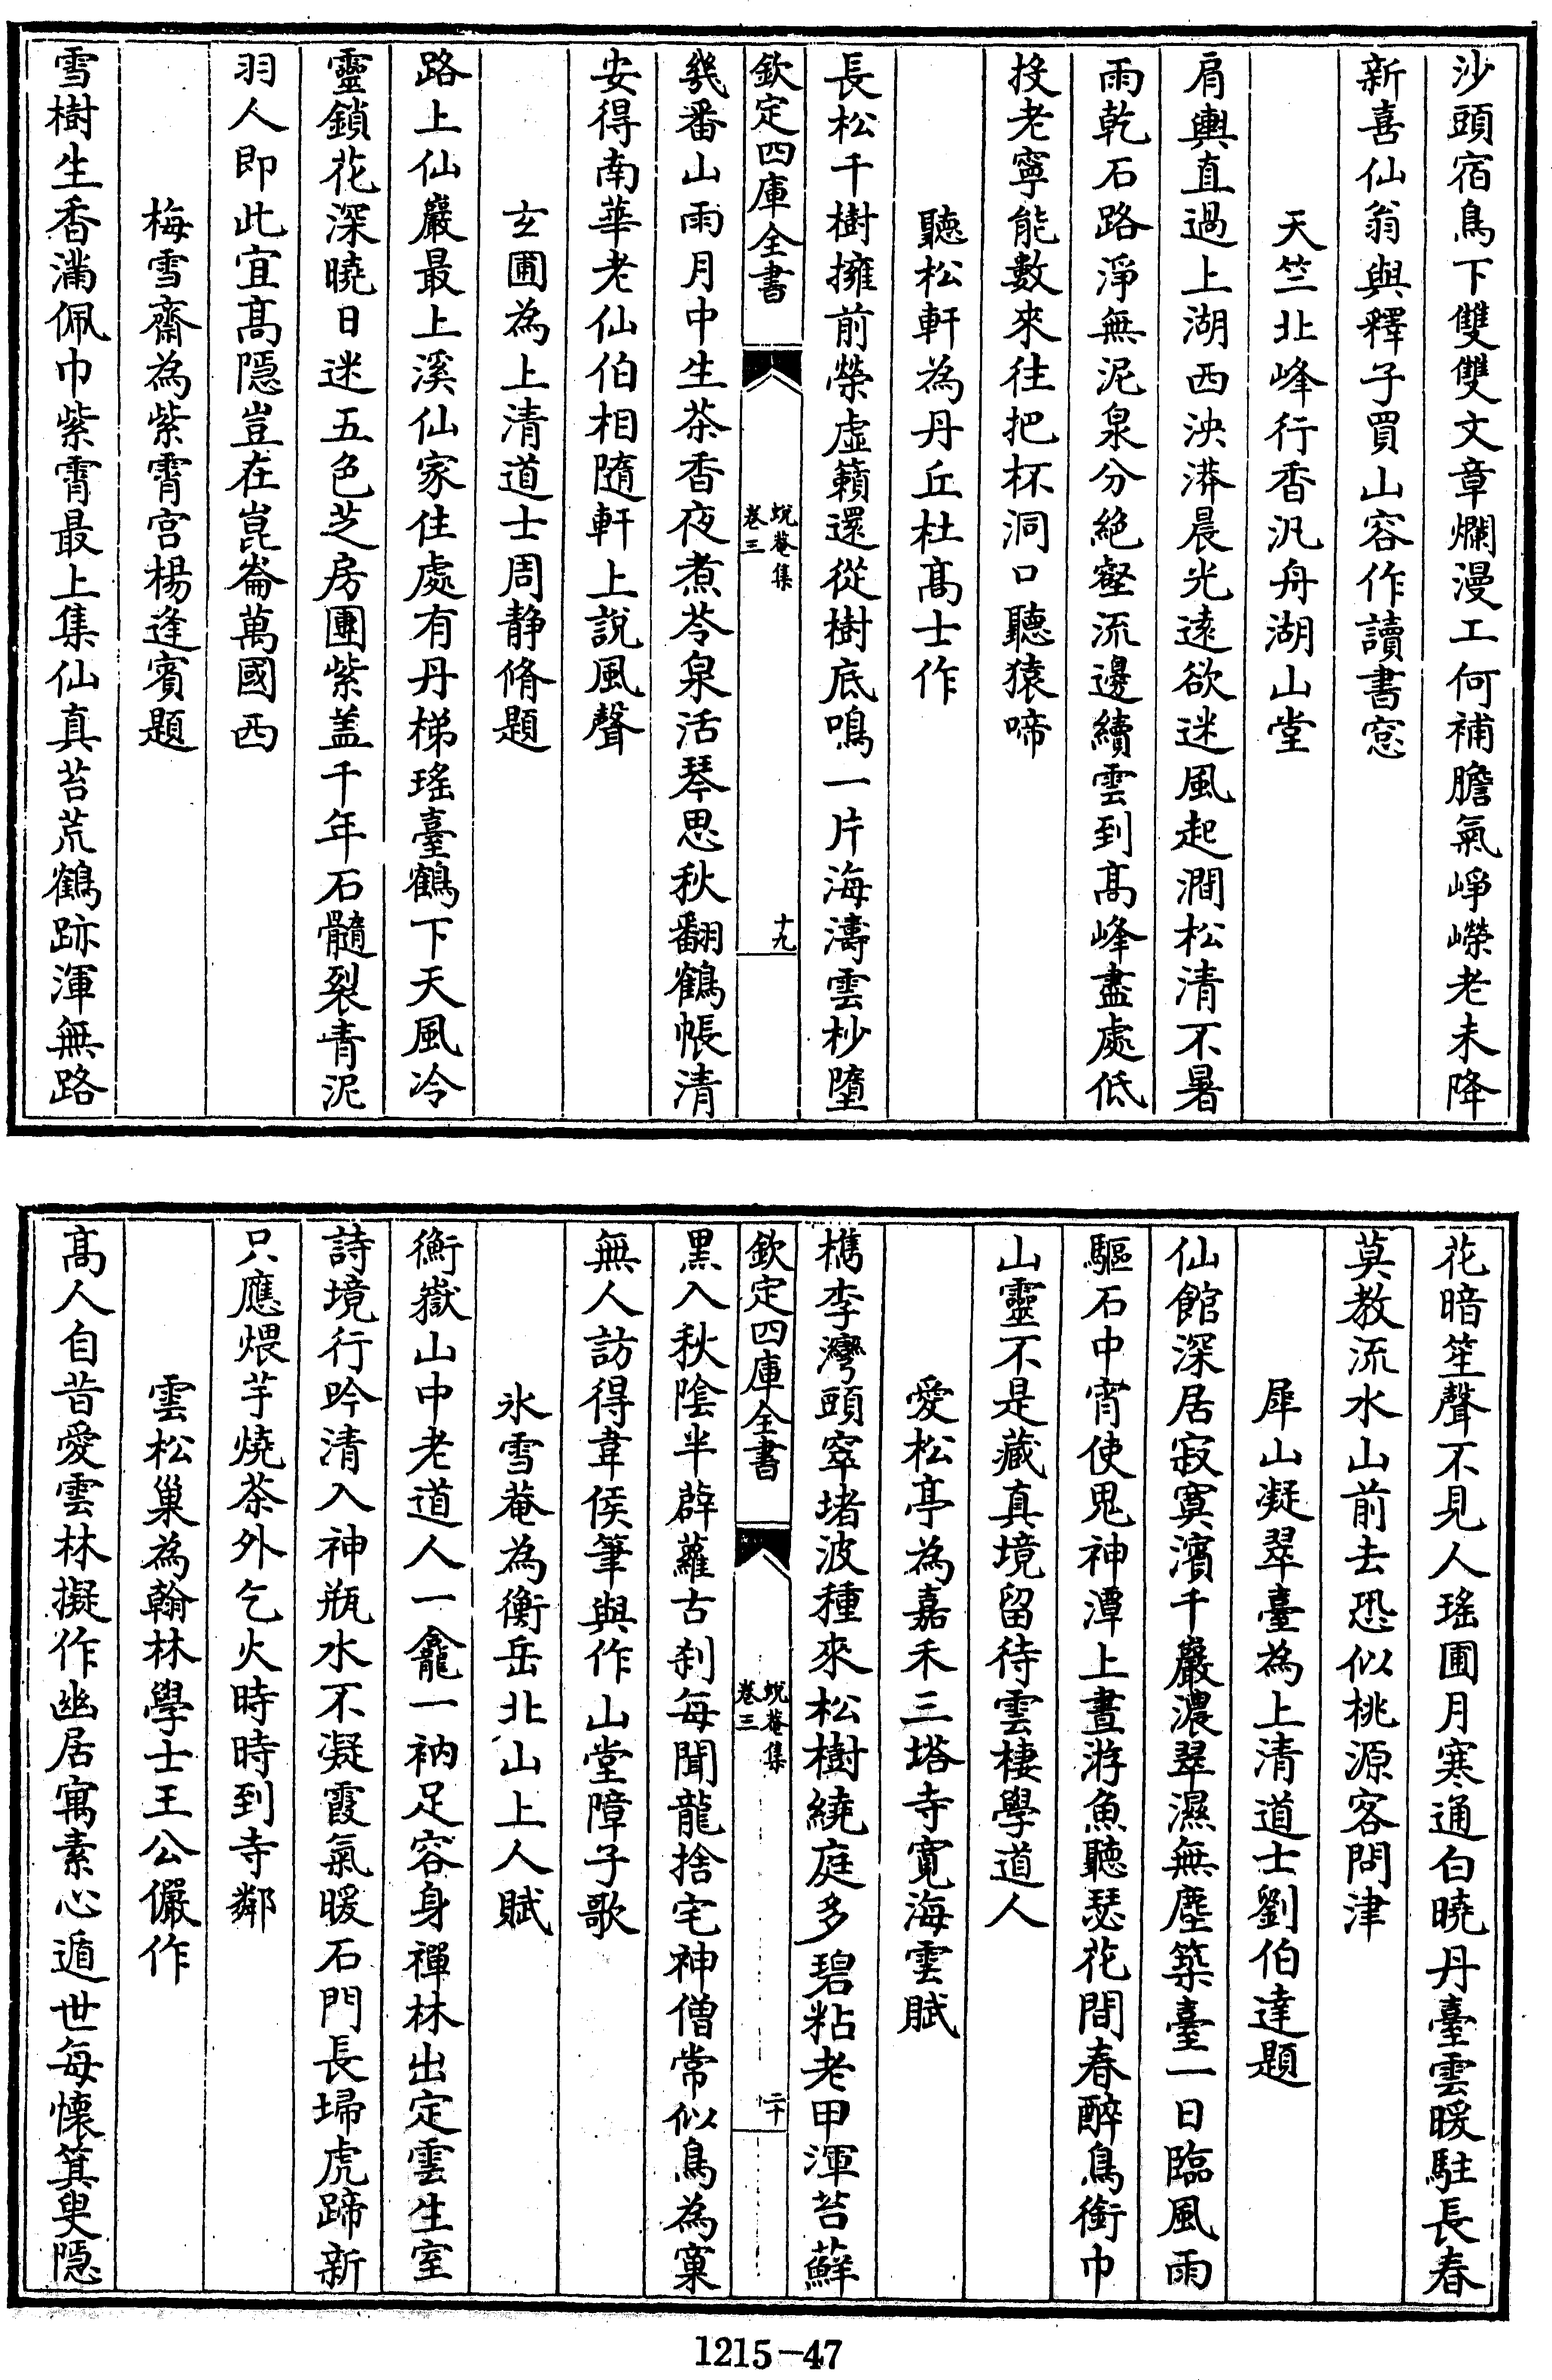 沙頭宿鳥下雙雙文章爛漫工何補膽氣崢嶸老未降
新喜仙翁與釋子買山容作讀書窓
天竺北峰行香汎舟湖山堂
肩輿直過上湖西泱漭晨光遠欲迷風起澗松清不暑
雨乾石路淨無泥泉分絶壑流邊續雲到髙峰盡處低
投老寧能數來往把杯洞口聽猿啼
聽松軒為丹丘杜髙士作
長松千樹擁前榮虚籟還從樹底鳴一片海濤雲杪墮
欽定四庫全書
蛻菴集
卷三
十九
幾番山雨月中生茶香夜煮苓泉活琴思秋翻鶴帳清
安得南華老仙伯相隨軒上說風聲
玄圃為上清道士周静脩題
路上仙巖最上溪仙家住處有丹梯瑤臺鶴下天風冷
靈鎖花深曉日迷五色芝房團紫盖千年石髓裂青泥
羽人即此宜髙隠豈在崑崙萬國西
梅雪齋為紫霄宫楊逢賓題
雪樹生香滿佩巾紫霄最上集仙真苔荒鶴跡渾無路
花暗笙聲不見人瑤圃月寒通白曉丹臺雲暖駐長春
莫教流水山前去恐似桃源客問津
犀山凝翠臺為上清道士劉伯達題
仙館深居寂寞濱千巖濃翠濕無塵築臺一日臨風雨
驅石中宵使鬼神潭上晝游魚聽瑟花間春醉鳥銜巾
山靈不是藏真境留待雲棲學道人
愛松亭為嘉禾三塔寺寛海雲賦
檇李灣頭窣堵波種來松樹繞庭多碧粘老甲渾苔蘚
欽定四庫全書
蛻菴集
卷三
二十
黒入秋陰半薜蘿古刹每聞龍捨宅神僧常似鳥為窠
無人訪得韋侯筆與作山堂障子歌
氷雪菴為衡岳北山上人賦
衡嶽山中老道人一龕一衲足容身禪林出定雲生室
詩境行吟清入神瓶水不凝霞氣暖石門長埽虎蹄新
只應煨芋燒茶外乞火時時到寺鄰
雲松巢為翰林學士王公儼作
髙人自昔愛雲林擬作幽居寓素心遁世每懐箕叟隠
1215-47